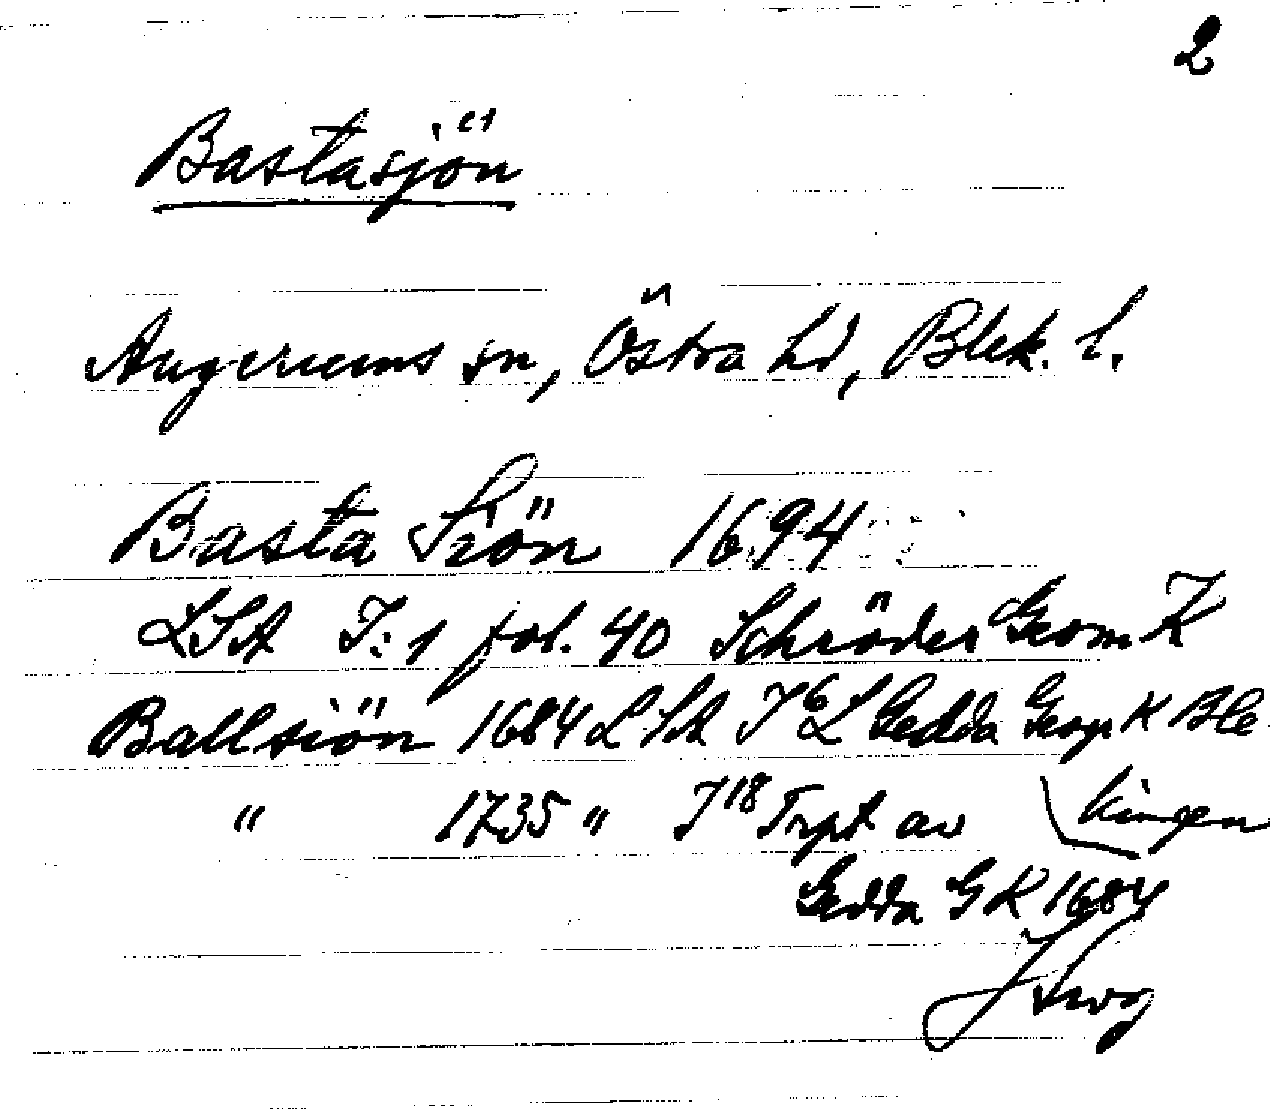 2
Bastasjön
Augerums sn, Östra hd, Blek. l.
Basta Siön 1694
LSA I:1 fol. 40 Schröder Geom K
Ballsiön 1684 LSA I 6 L Gedda Geogr K Ble-
kingen
" 1735 " I 18 Trpt av
Gedda GK 1684